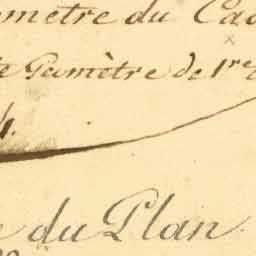 ometre du Cad
te Géomètre de 1re c
du Plan